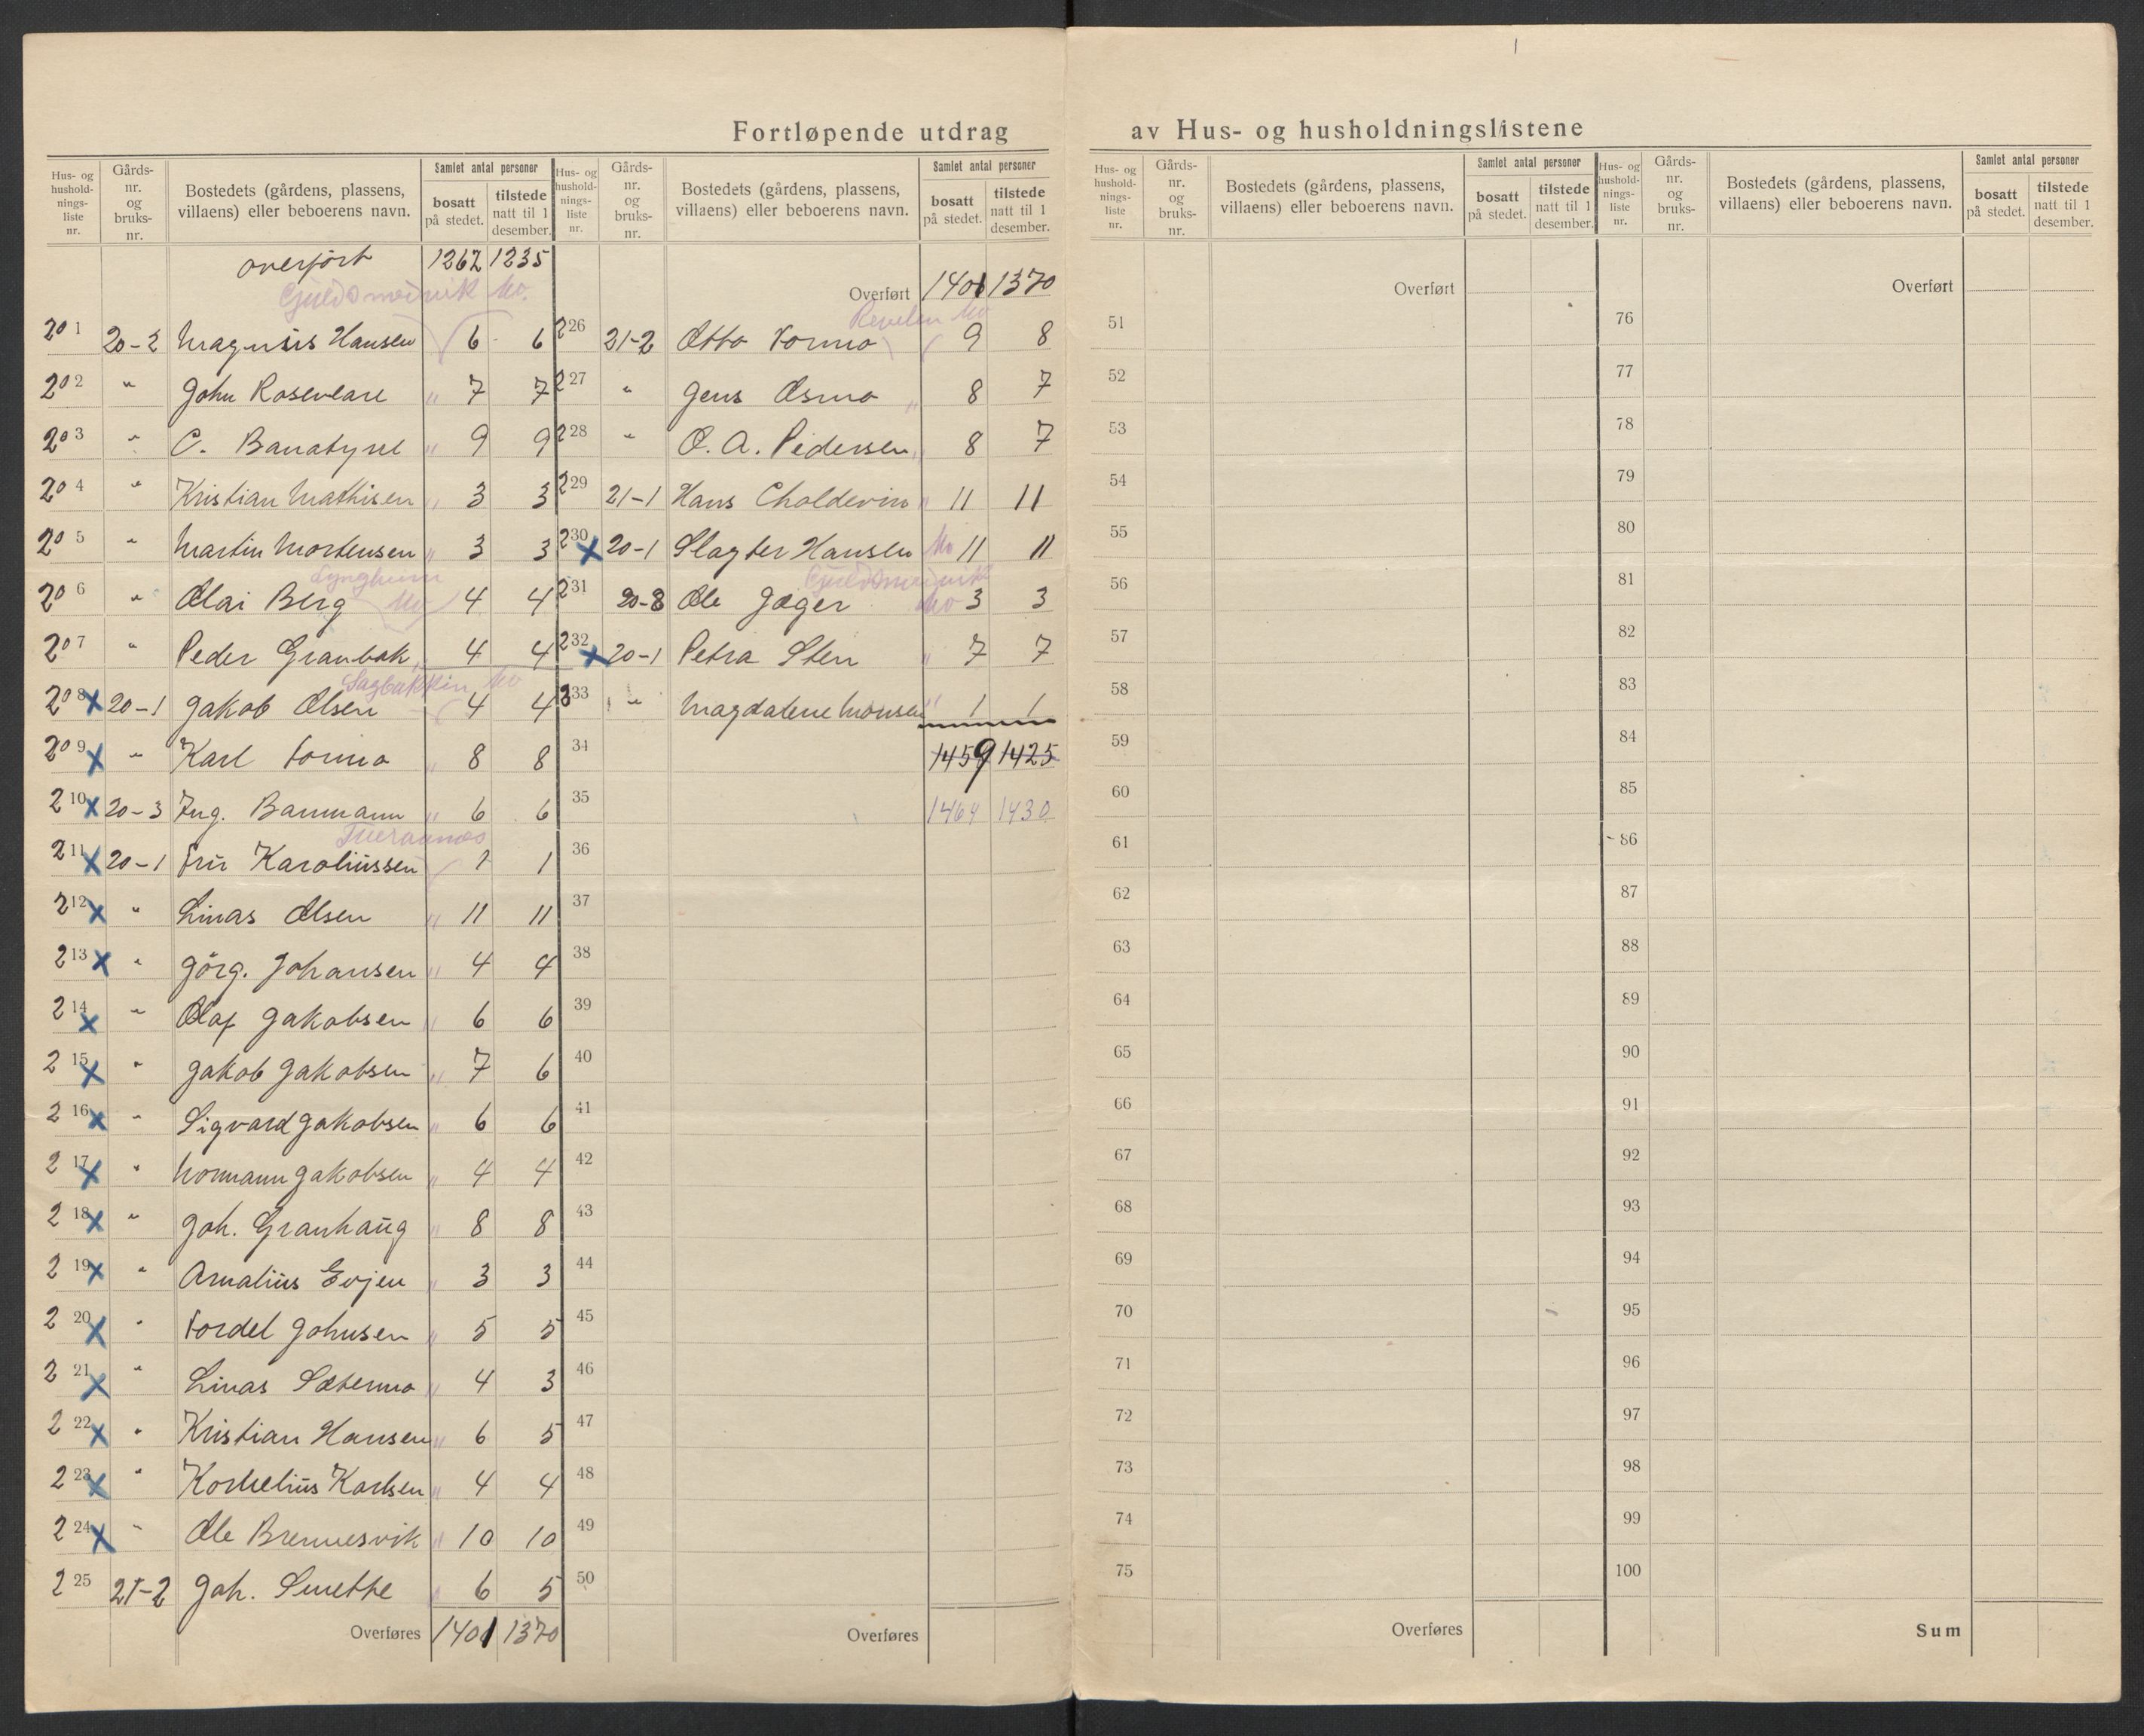 Fortløpende utdrag av Hus- og husholdningslistene
Hus- og hushold-nings-liste nr. Gårds-nr. og bruks-nr. Bostedets (gårdens, plassens, villaens) eller beboerens navn. Samlet antal personer bosatt på stedet. tilstede natt til 1 desember.
overført 1262 1235
Guldsmedvik Mo.
201 20-2 Magnus Hansen 6 6
202 " John Roseveare " 7 7
203 " C. Banatyne " 9 9
204 " Kristian Mathisen " 3 3
205 " Martin Mortensen " 3 3
Lyngheim Mo
206 " Olai Berg 4 4
207 " Peder Granbak " 4 4
Sagbakken Mo
208 x 20-1 Jakob Olsen 4 4
209 x " Karl Formo " 8 8
210 x 20-3 Ing. Baumann " 6 6
Tveraanes
211 x 20-1 Fru Karoliussen 1 1
212 x " Linas Olsen " 11 11
213 x " Jörg. Johansen " 4 4
214 x " Olaf Jakobsen " 6 6
215 x " Jakob Jakobsen " 7 6
216 x " Sigvard Jakobsen 6 6
217 x " Normann Jakobsen " 4 4
218 x " Joh. Granhaug " 8 8
219 x " Arnalius Evjen " 3 3
220 x " Tordel Johnsen " 5 5
221 x " Linas Sætermo " 4 3
222 x " Kristian Hansen " 6 5
223 x " Kornelius Karlsen " 4 4
224 x " Ole Brennesvik " 10 10
225 21-2 Joh. Smette " 6 5
Overføres 1401 1370
Hus- og hushold-nings-liste nr. Gårds-nr. og bruks-nr. Bostedets (gårdens, plassens, villaens) eller beboerens navn. Samlet antal personer bosatt på stedet. tilstede natt til 1 desember.
Overført 1401 1370
Revelen Mo
226 21-2 Otto Formo 9 8
227 " Jens Osmo " 8 7
228 " O. A. Pedersen " 8 7
229 21-1 Hans Choldevin " 11 11
230 x 20-1 Slagter Hansen Mo 11 11
Guldsmedvik
231 20-8 Ole Jæger Mo 3 3
232 x 20-1 Petra Sten " 7 7
233 " Magdalene Monsen " 1 1
34 1459 1425
35 1464 1430
36
37
38
39
40
41
42
43
44
45
46
47
48
49
50
Overføres
Hus- og hushold-nings-liste nr. Gårds-nr. og bruks-nr. Bostedets (gårdens, plassens, villaens) eller beboerens navn. Samlet antal personer bosatt på stedet. tilstede natt til 1 desember.
Overført
51
52
53
54
55
56
57
58
59
60
61
62
63
64
65
66
67
68
69
70
71
72
73
74
75
Overføres
Hus- og hushold-nings-liste nr. Gårds-nr. og bruks-nr. Bostedets (gårdens, plassens, villaens) eller beboerens navn. Samlet antal personer bosatt på stedet. tilstede natt til 1 desember.
Overført
76
77
78
79
80
81
82
83
84
85
86
87
88
89
90
91
92
93
94
95
96
97
98
99
100
Sum